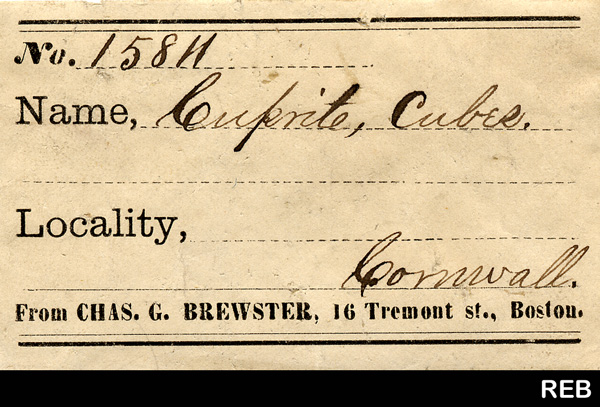 No. 1584
Name, Cuprite, Cubes.
Locality,
Cornwall.
From CHAS. G. BREWSTER, 16 Tremont st., Boston.
REB